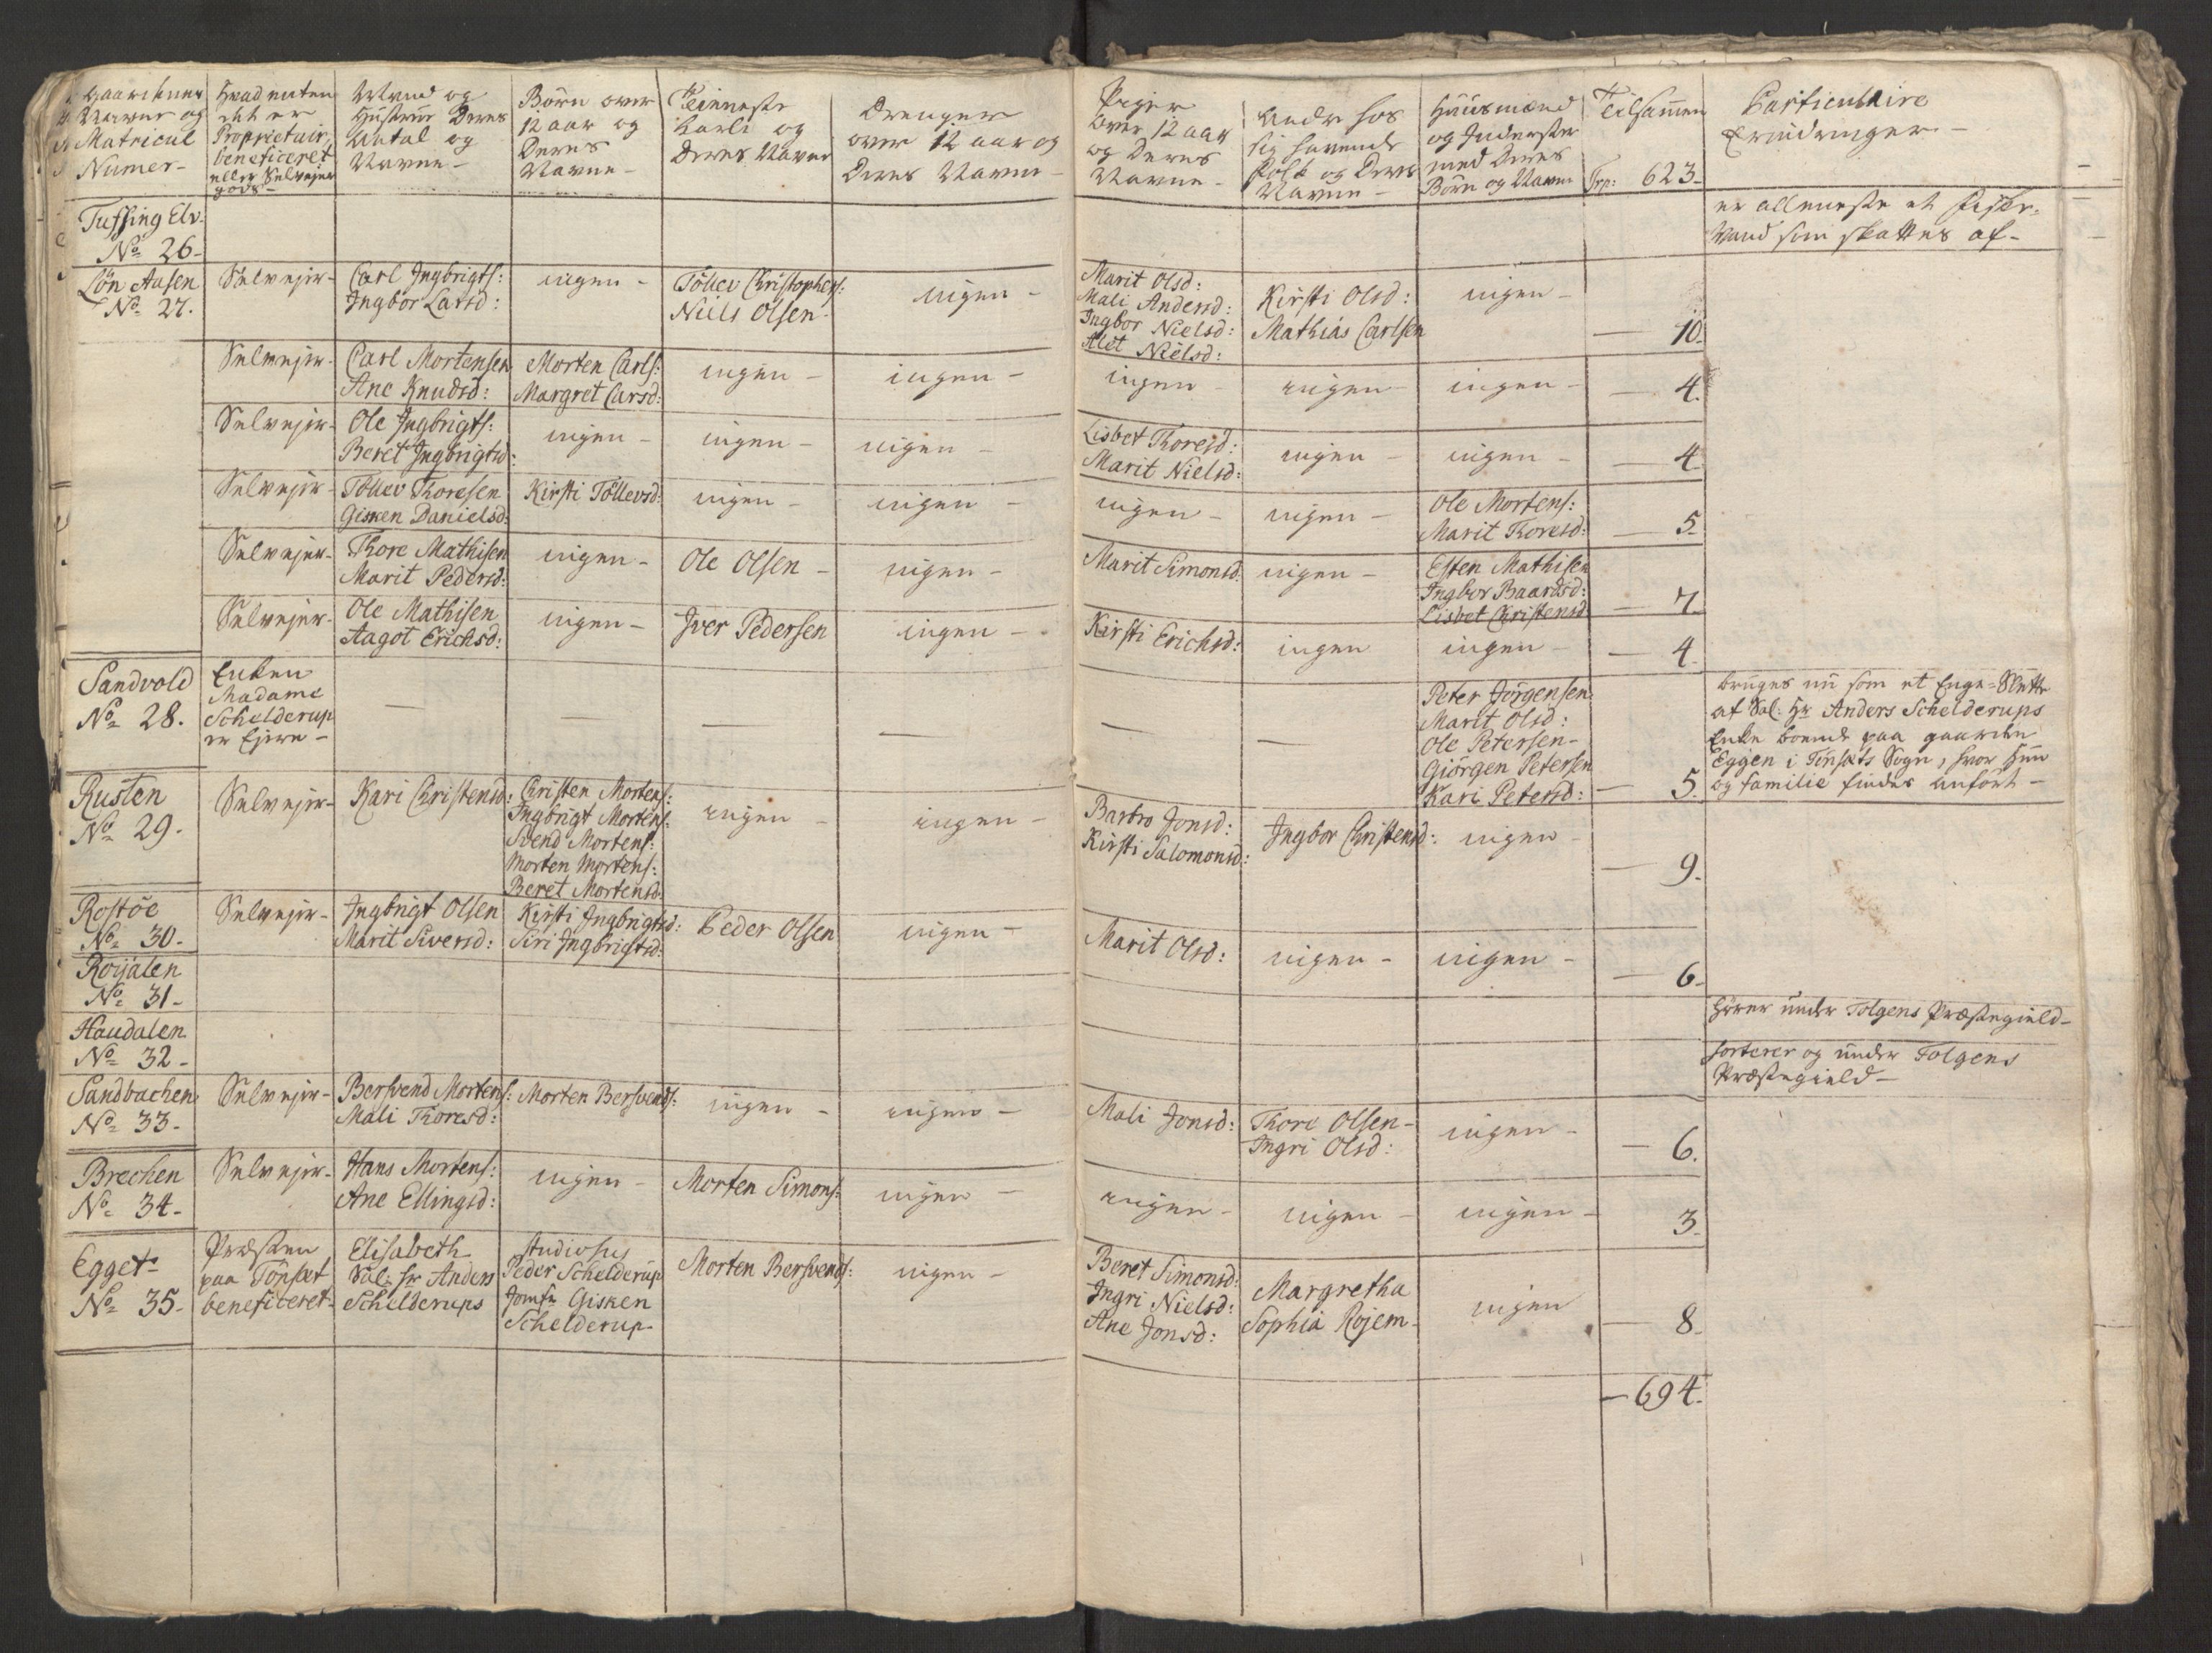 Gaardenes
Navne og
Matricul
Numer-
Hvad enten
det er
Proprietair,
beneficeret
eller Selvejer
gods-
Mand og
Hustrue Deres
Antal og
Navne-
Børn over
12 aar og
Deres
Navne-
Tienneste
Karle og
Deres Navne
Drenger
over 12 aar og
Deres Navne-
Piger
over 12 aar
og Deres
Navne-
Andre hos
sig havende
Folk og Deres
Navne-
Huusmænd
og Inderster
med Deres
Børn og Navne
Tilsammen
Trp: 623-
Particulaire
Erindringer-
Tuffsing Elv-
No 26-
er alleneste et Fisker-
Vand som skattes af-
Løn Aasen
No 27.
Selvejer-
Carl Ingbrigts:
Ingbor Larsd:
ingen-
Töllev Christophers:
Niels Olsen-
ingen-
Marit Olsd:
Mali Andersd:
Ingbor Nielsd:
Alet Nielsd:
Kirsti Olsd:
Mathias Carlsen
ingen-
10-
Selvejer-
Carl Mortensen
Ane Knudsd:
Morten Carls:
Margret Carsd:
ingen-
ingen-
ingen-
ingen-
ingen-
4.
Selvejer-
Ole Ingbrigts:
Beret Ingbrigtsd:
ingen-
ingen-
ingen-
Lisbet Thoresd:
Marit Nielsd:
ingen-
ingen-
4
Selvejer-
Töllev Thoresen
Gisken Danielsd:
Kirsti Töllevsd:
ingen-
ingen-
ingen-
ingen-
Ole Mortens:
Marit Thoresd:
5-
Selvejer-
Thore Mathisen
Marit Pedersd:
ingen-
Ole Olsen-
ingen-
Marit Simonsd:
ingen-
Esten Mathisen
Ingbor Baardsd:
Lisbet Christensd:
7
Selvejer-
Ole Mathisen
Aagot Erichsd:
ingen-
Jver Pedersen
ingen-
Kirsti Erichsd:
ingen
ingen-
4
Sandvold
No 28.
Enken
Madame
Schelderup
er Ejere-
Peter Jörgensen
Marit Olsd:
Ole Petersen-
Giörgen Petersen
Kari Petersd:
5.
bruges nu som et Enge-Slette
af Sal: Hr Anders Schelderups
Enke boende paa gaarden
Eggen i Tönsets Sogn, hvor hun
og familie findes anført-
Rusten
No 29-
Selvejer-
Kari Christensd:
Christen Mortens:
Ingbrigt Mortens:
Svend Mortens:
Morten Mortens:
Beret Mortensd:
ingen-
ingen-
Barbro Jonsd:
Kirsti Salomonsd:
Ingbor Christensd:
ingen-
9.
Rostöe
No 30-
Selvejer-
Ingbrigt Olsen
Marit Siversd:
Kirsti Ingbrigtsd:
Siri Ingbrigtsd:
Peder Olsen
ingen-
Marit Olsd:
ingen-
ingen-
6-
Roijalen
No 31-
hører under Tolgens Præstegield-
Haudalen
No 32-
sorterer og under Tolgens
Præstegield-
Sandbachen
No 33-
Selvejer-
Bersvend Mortens:
Mali Thoresd:
Morten Bersvends:
ingen-
ingen-
Mali Jonsd:
Thore Olsen-
Ingri Olsd:
ingen-
6.
Brechen
No 34-
Selvejer-
Hans Mortens:
Ane Ellingsd:
ingen-
Morten Simons:
ingen-
ingen-
ingen-
ingen-
3-
Egget-
No 35-
Præsten
paa Tönset
beneficeret-
Elisabeth
Sal: hr Anders
Schelderups
Studiosus
Peder Schelderup
Jomfr Gisken
Schelderup-
Morten Bersvends:
ingen-
Beret Simonsd:
Ingri Nielsd:
Ane Jonsd:
Margretha
Sophia Rojem-
ingen
8-
-694-